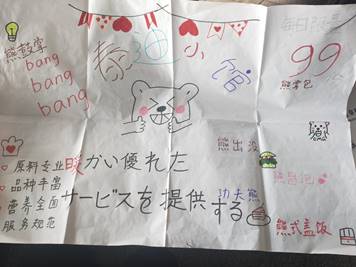 熊鼓掌
bang
bang
bang
春 迪 小 馆
99
熊掌包
熊出没
功夫熊
熊式盖饭
原料专业
品种丰富
营养全面
服务规范
暖かい優れた
サービスを提供する